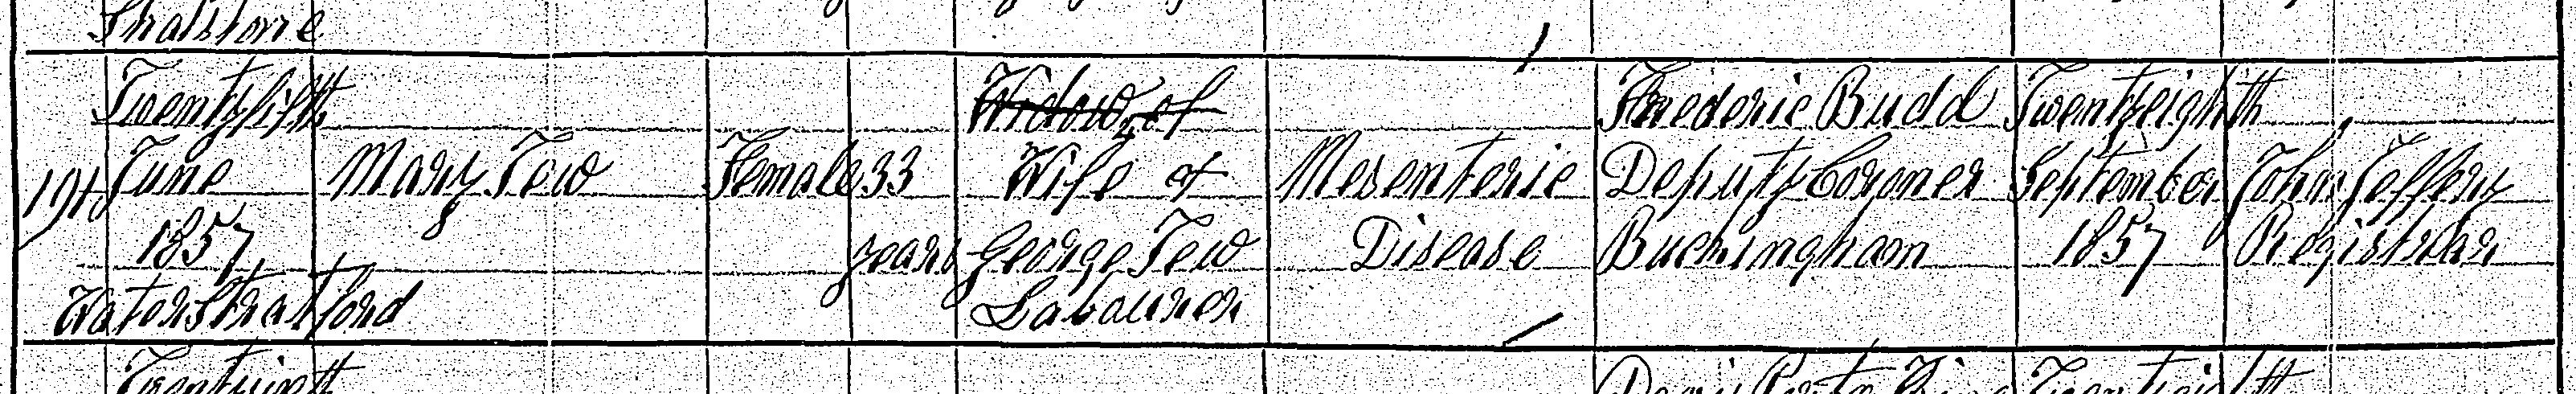 Shalstone
Twentyfifth
June
1857
Water Stratford
191
Mary Tew
Female
33
years
Widow of
Wife of
George Tew
Labourer
Mesenteric
Disease
Frederic Budd
Deputy Coroner
Buckingham
Twentyeighth
September
1857
John Jeffery
Registrar
Twentyeighth